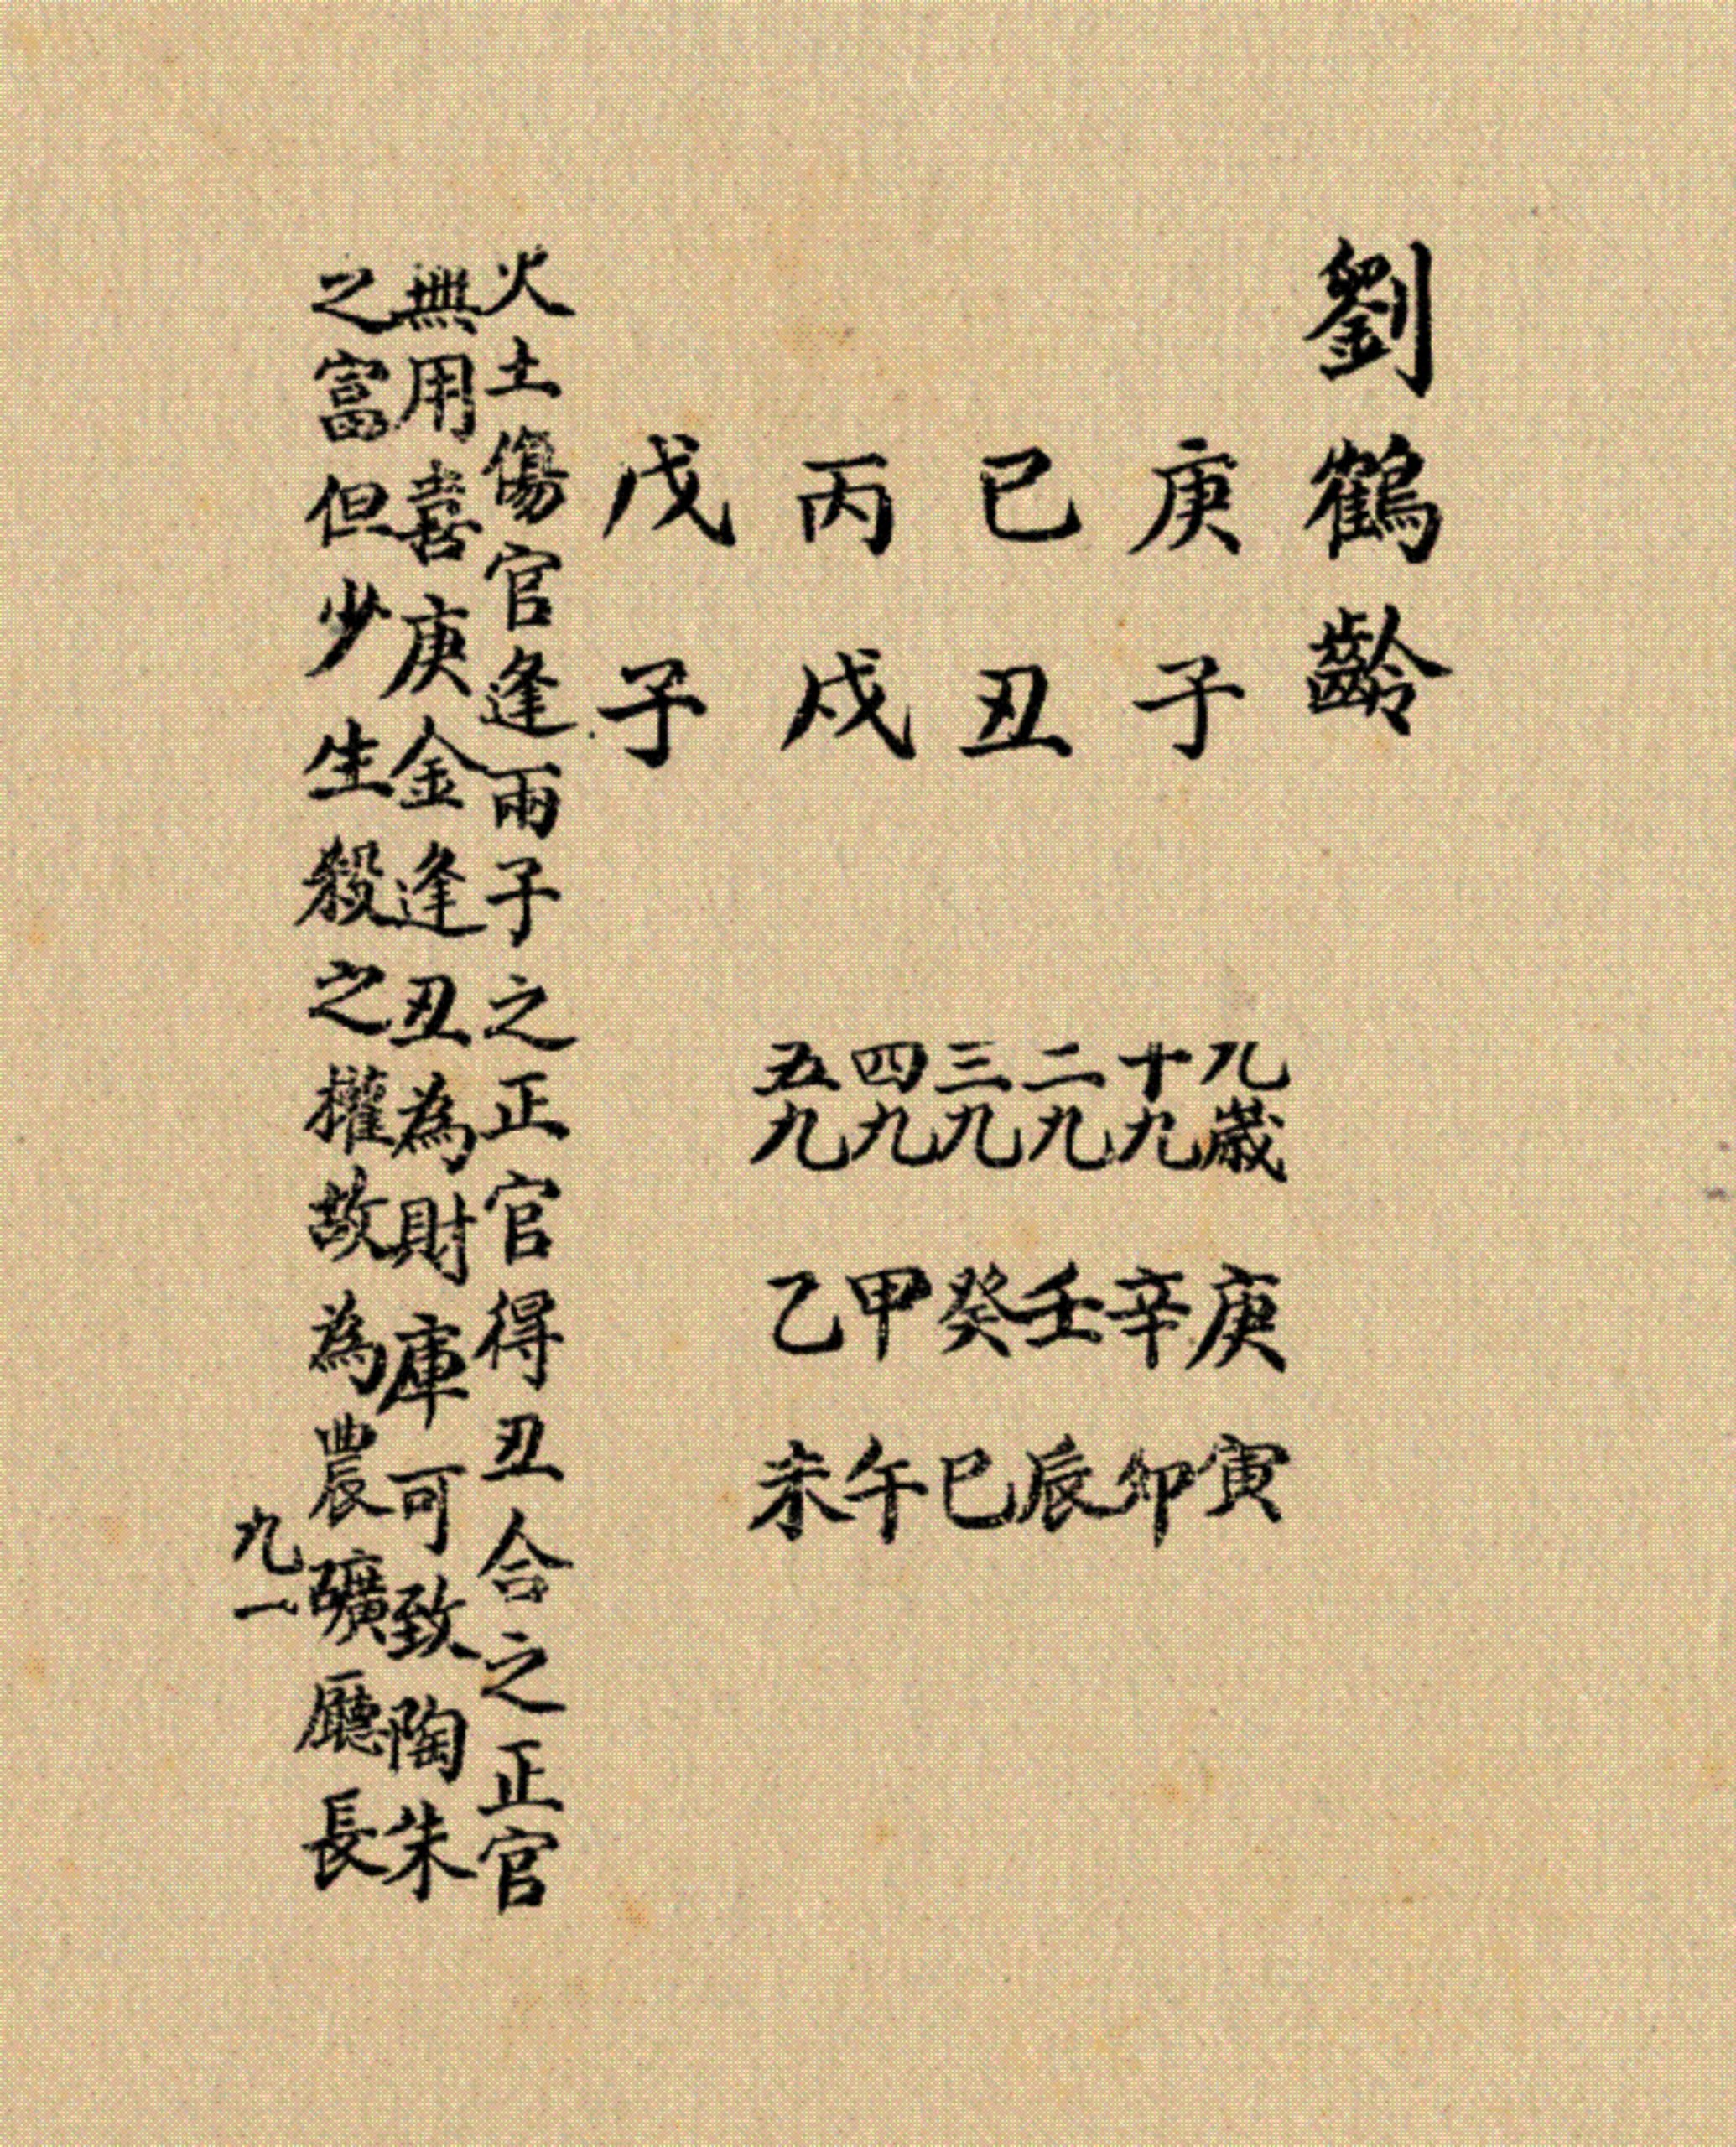 劉鶴齡
庚子
己丑
丙戌
戊子
九歲 庚寅
十九 辛卯
二九 壬辰
三九 癸巳
四九 甲午
五九 乙未
火土傷官逢兩子之正官得丑合之正官
無用喜庚金逢丑為財庫可致陶朱
之富但少生殺之權故為農礦廳長
九一